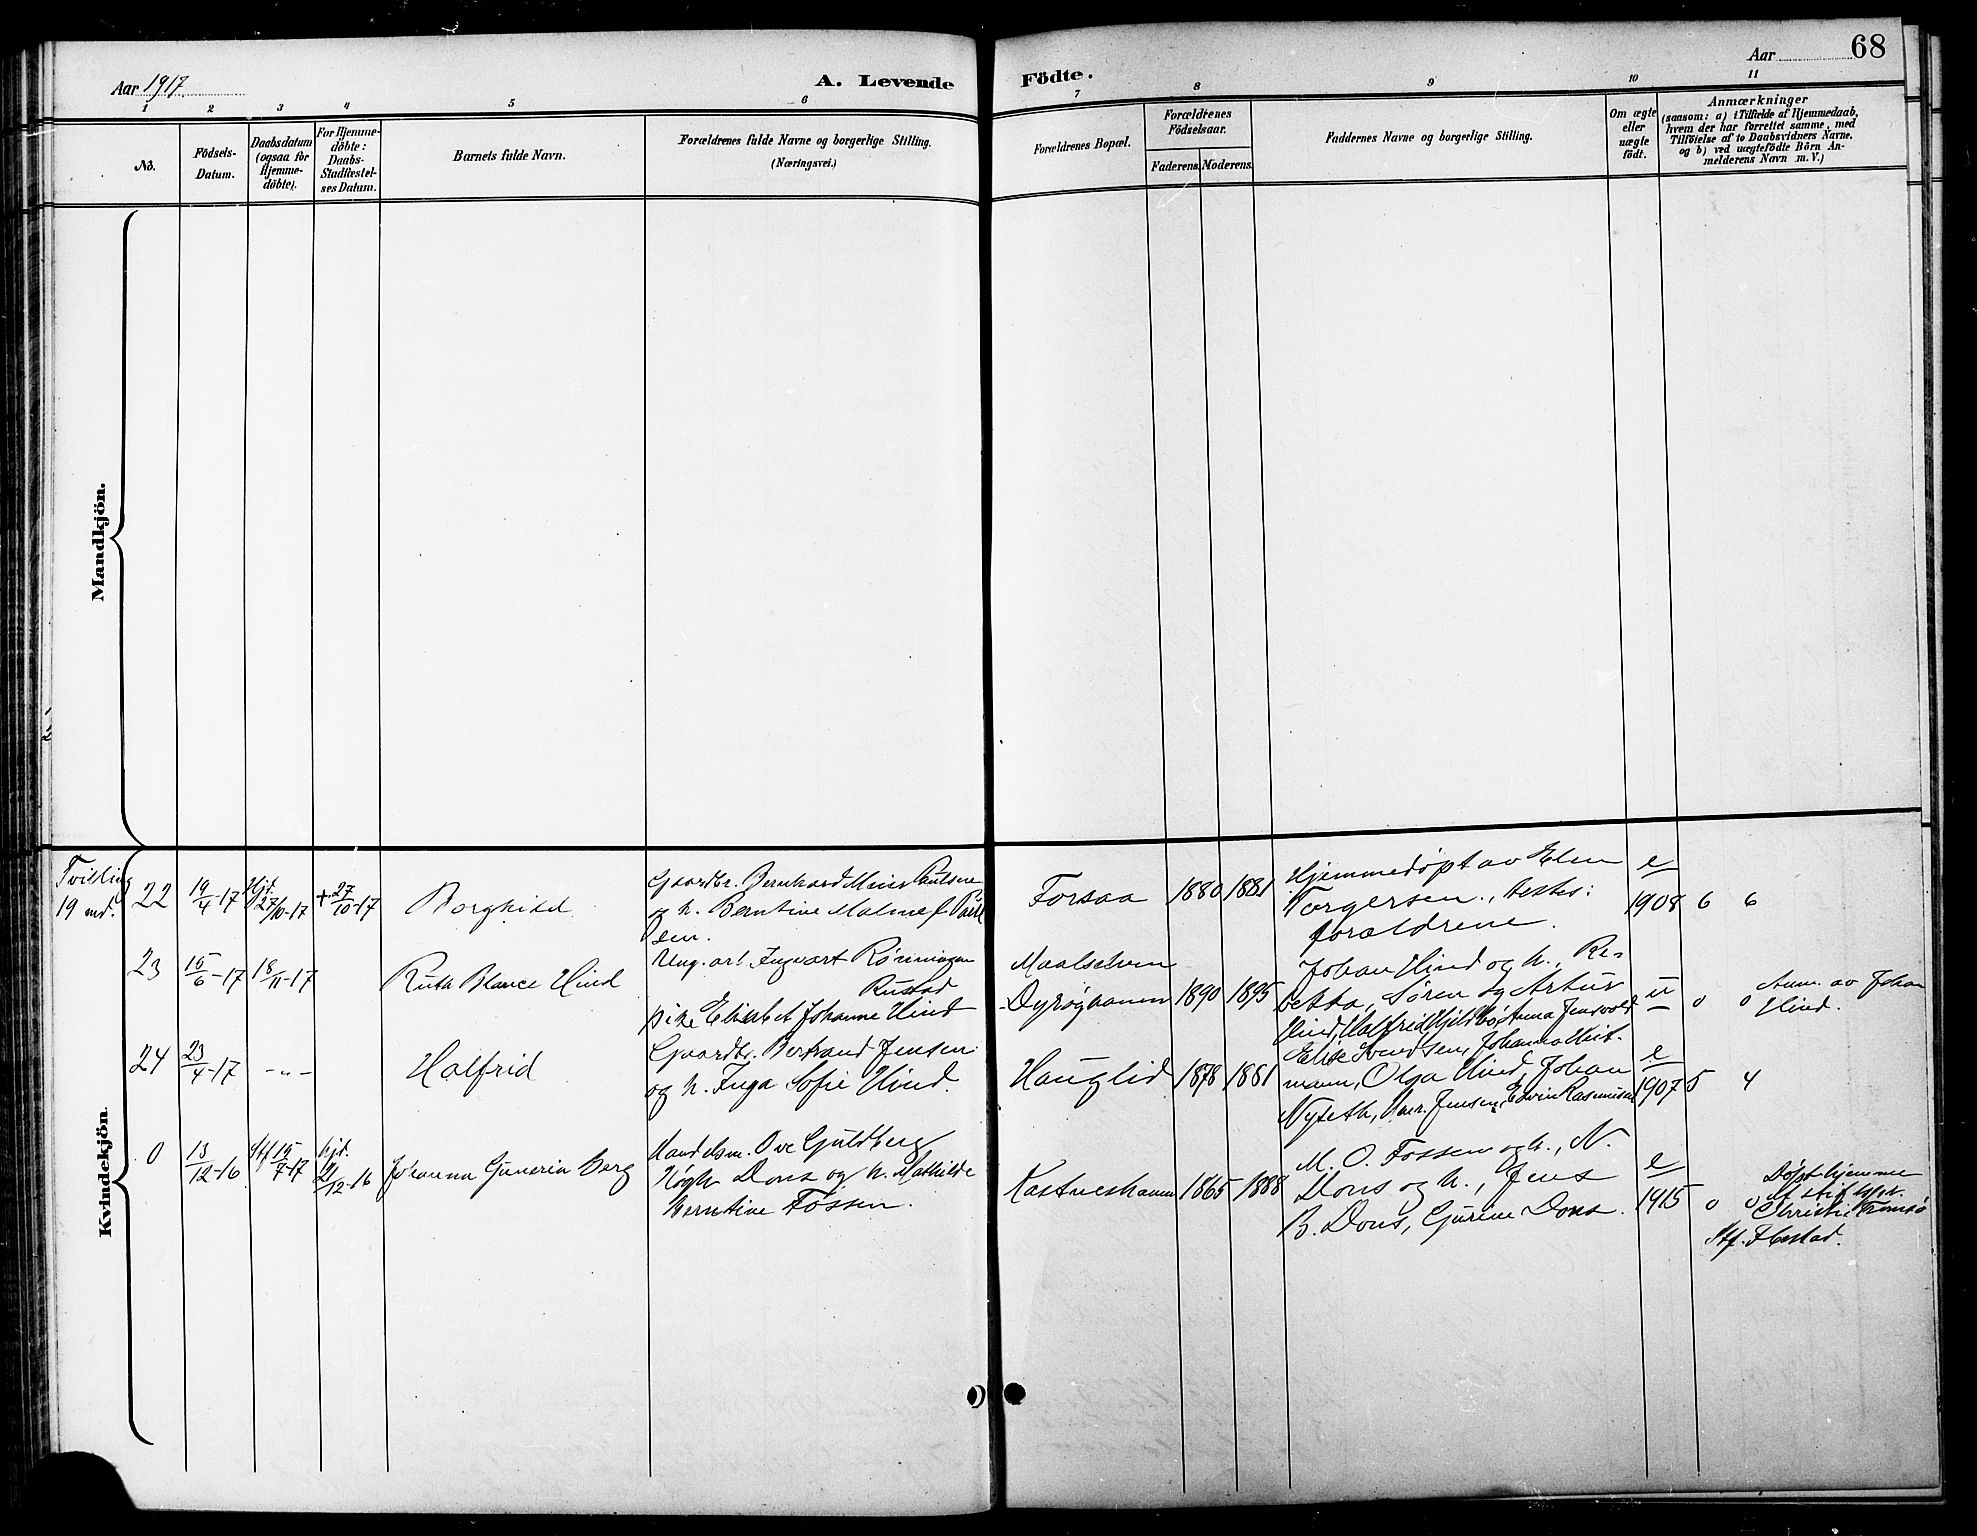 68
Aar 1917.
A. Levende
Födte.
Aar
1 2 3 4 5 6 7 8 9 10 11
No.
Födsels-
Datum.
Daabsdatum
(ogsaa for
Hjemme-
döbte).
For Hjemme-
döbte:
Daabs-
Stadfæstel-
ses Datum.
Barnets fulde Navn.
Forældrenes fulde Navne og borgerlige Stilling.
(Næringsvei.)
Forældrenes Bopæl.
Forældrenes
Födselsaar.
Faderens. Moderens.
Faddernes Navne og borgerlige Stilling.
Om ægte
eller
uægte
födt.
Anmærkninger
(saasom: a) i Tilfælde af Hjemmedaab,
hvem der har forrettet samme, med
Tilföielse af to Daabsvidners Navne.
og b) ved uægtefödte Börn An-
melderens Navn m. V.)
Mandkjön.
Kvindekjön.
Tvilling
19 md.
22
19/4-17
Hjd.
27/10-17
+27/10-17
Borghild
Gaardbr. Bernhard Paulsen
og h. Berntine Malme f. Paul
sen.
Forsaa
1880 1881
Hjemmedøpt av Elen
Torgersen.,
forældrene.
e
1908 6 6
23
15/6-17
18/11-17
Ruth Blance Hind
Ung. arb. Ingvart Rønningen
Rustad
pike Elisabet Johanne Hind
Maalselven
Dyrøyhavn
1890 1895
Johan Hind og h., Re-
bekka, Søren og Artur
Hind, Halfrid Anna Jensvold
u
0 0
Anm. av Johan
Hind.
24
23/4-17
-"-
Halfrid
Gaardbr. Bertrand Jensen
og h. Inga Sofie Hind.
Hauglid
1878 1881
Elise Svendsen, Johanna
mann, Olga Hind, Johan
Nyseth, Jensen, Edvin Rasmussen
e
1907 5 4
0
13/12-16
Stf 15/7-17
hjd.
21/12-16
Johanna Guneria Berg
Handelsm. Ove Guldberg
Høgh Dons og h. Mathilde
Berntine Fossen.
Kastneshavn
1865 1888
M. O. Fossen og h., N.
Dons og h., Jens
B. Dons, Gurine Dons.
e
1915 0 0
Døpt hjemme
af stiftspr.
Christie Tromsø
Stf. Ibestad.